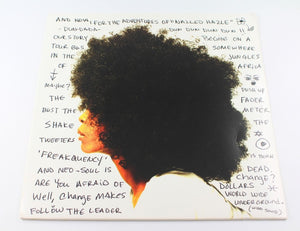 AND NOW, FOR THE ADVENTURES OF "ANALOG HAZLE"
-DUN-DADA- DUN DUN DUN DUN !!
OUR STORY BEGINS ON A
TOUR BUS SOMEWHERE
IN THE JUNGLES
OF AFRICA
MAYBE? PUSH UP
THE FADER
BUST THE METER
SHAKE THE
TWEETERS IS BORN
'FREAKQUENCY' DEAD
AND NEO-SOUL IS Change?
ARE YOU AFRAID OF DOLLARS
Well, Change MAKES WORLD WIDE
FOLLOW THE LEADER UNDERGROUND.